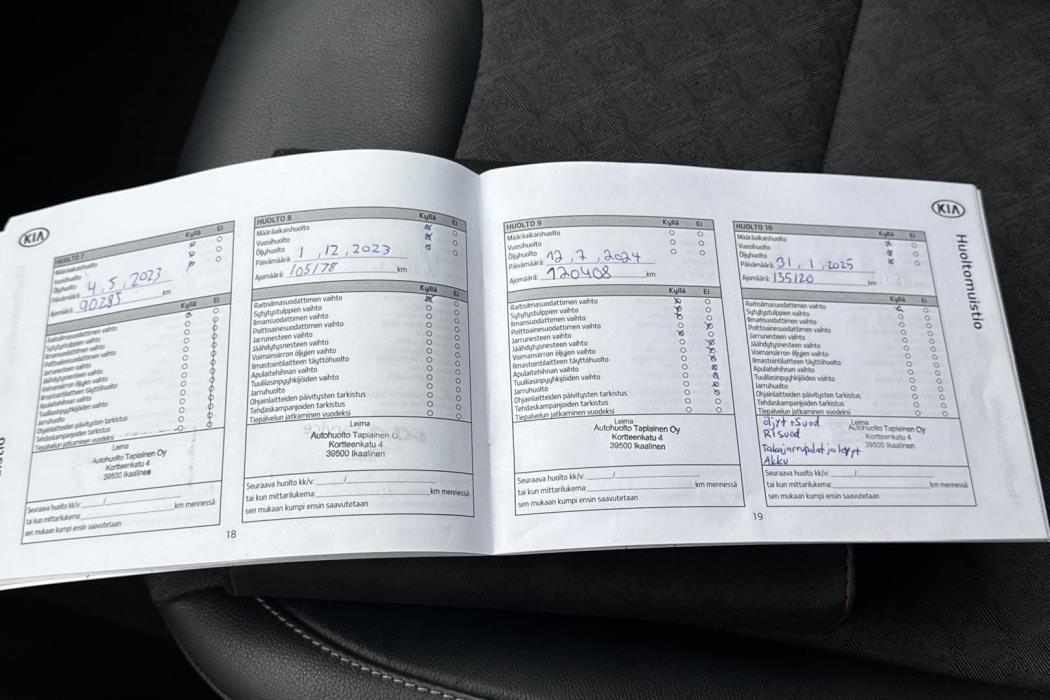 KIA
HUOLTO 7
Kyllä Ei
Määräaikaishuolto
Vuosihuolto
Öljyhuolto
Päivämäärä: 4, 5, 2023
Ajomäärä: 90285 km
Kyllä Ei
Raitisilmasuodattimen vaihto
Sytytystulppien vaihto
Ilmansuodattimen vaihto
Polttoainesuodattimen vaihto
Jarrunesteen vaihto
Jäähdytysnesteen vaihto
Voimansiirron öljyjen vaihto
Ilmastointilaitteen täyttöhuolto
Apulaitehihnan vaihto
Tuulilasinpyyhkijöiden vaihto
Jarruhuolto
Ohjainlaitteiden päivitysten tarkistus
Tehdaskampanjoiden tarkistus
Tiepalvelun jatkaminen vuodeksi
Leima
Autohuolto Tapiainen Oy
Kortteenkatu 4
39500 Ikaalinen
Seuraava huolto kk/v: /
tai kun mittarilukema: km mennessä
sen mukaan kumpi ensin saavutetaan
HUOLTO 8
Kyllä Ei
Määräaikaishuolto
Vuosihuolto
Öljyhuolto
Päivämäärä: 1, 12, 2023
Ajomäärä: 105178 km
Kyllä Ei
Raitisilmasuodattimen vaihto
Sytytystulppien vaihto
Ilmansuodattimen vaihto
Polttoainesuodattimen vaihto
Jarrunesteen vaihto
Jäähdytysnesteen vaihto
Voimansiirron öljyjen vaihto
Ilmastointilaitteen täyttöhuolto
Apulaitehihnan vaihto
Tuulilasinpyyhkijöiden vaihto
Jarruhuolto
Ohjainlaitteiden päivitysten tarkistus
Tehdaskampanjoiden tarkistus
Tiepalvelun jatkaminen vuodeksi
Leima
Autohuolto Tapiainen O
Kortteenkatu 4
39500 Ikaalinen
Seuraava huolto kk/v: /
tai kun mittarilukema: km mennessä
sen mukaan kumpi ensin saavutetaan
18
HUOLTO 9
Kyllä Ei
Määräaikaishuolto
Vuosihuolto
Öljyhuolto
Päivämäärä: 12, 7, 2024
Ajomäärä: 120408 km
Kyllä Ei
Raitisilmasuodattimen vaihto
Sytytystulppien vaihto
Ilmansuodattimen vaihto
Polttoainesuodattimen vaihto
Jarrunesteen vaihto
Jäähdytysnesteen vaihto
Voimansiirron öljyjen vaihto
Ilmastointilaitteen täyttöhuolto
Apulaitehihnan vaihto
Tuulilasinpyyhkijöiden vaihto
Jarruhuolto
Ohjainlaitteiden päivitysten tarkistus
Tehdaskampanjoiden tarkistus
Tiepalvelun jatkaminen vuodeksi
Leima
Autohuolto Tapiainen Oy
Kortteenkatu 4
39500 Ikaalinen
Seuraava huolto kk/v: /
tai kun mittarilukema: km mennessä
sen mukaan kumpi ensin saavutetaan
KIA
HUOLTO 10
Kyllä Ei
Määräaikaishuolto
Vuosihuolto
Öljyhuolto
Päivämäärä: 31, 1, 2025
Ajomäärä: 135120 km
Kyllä Ei
Raitisilmasuodattimen vaihto
Sytytystulppien vaihto
Ilmansuodattimen vaihto
Polttoainesuodattimen vaihto
Jarrunesteen vaihto
Jäähdytysnesteen vaihto
Voimansiirron öljyjen vaihto
Ilmastointilaitteen täyttöhuolto
Apulaitehihnan vaihto
Tuulilasinpyyhkijöiden vaihto
Jarruhuolto
Ohjainlaitteiden päivitysten tarkistus
Tehdaskampanjoiden tarkistus
Tiepalvelun jatkaminen vuodeksi
Leima
öljyt + Suod
RI suod
Takajarrupalat ja levyt
Akku
Autohuolto Tapiainen Oy
Kortteenkatu 4
39500 Ikaalinen
Seuraava huolto kk/v: /
tai kun mittarilukema: km mennessä
sen mukaan kumpi ensin saavutetaan
19
Huoltomuistio